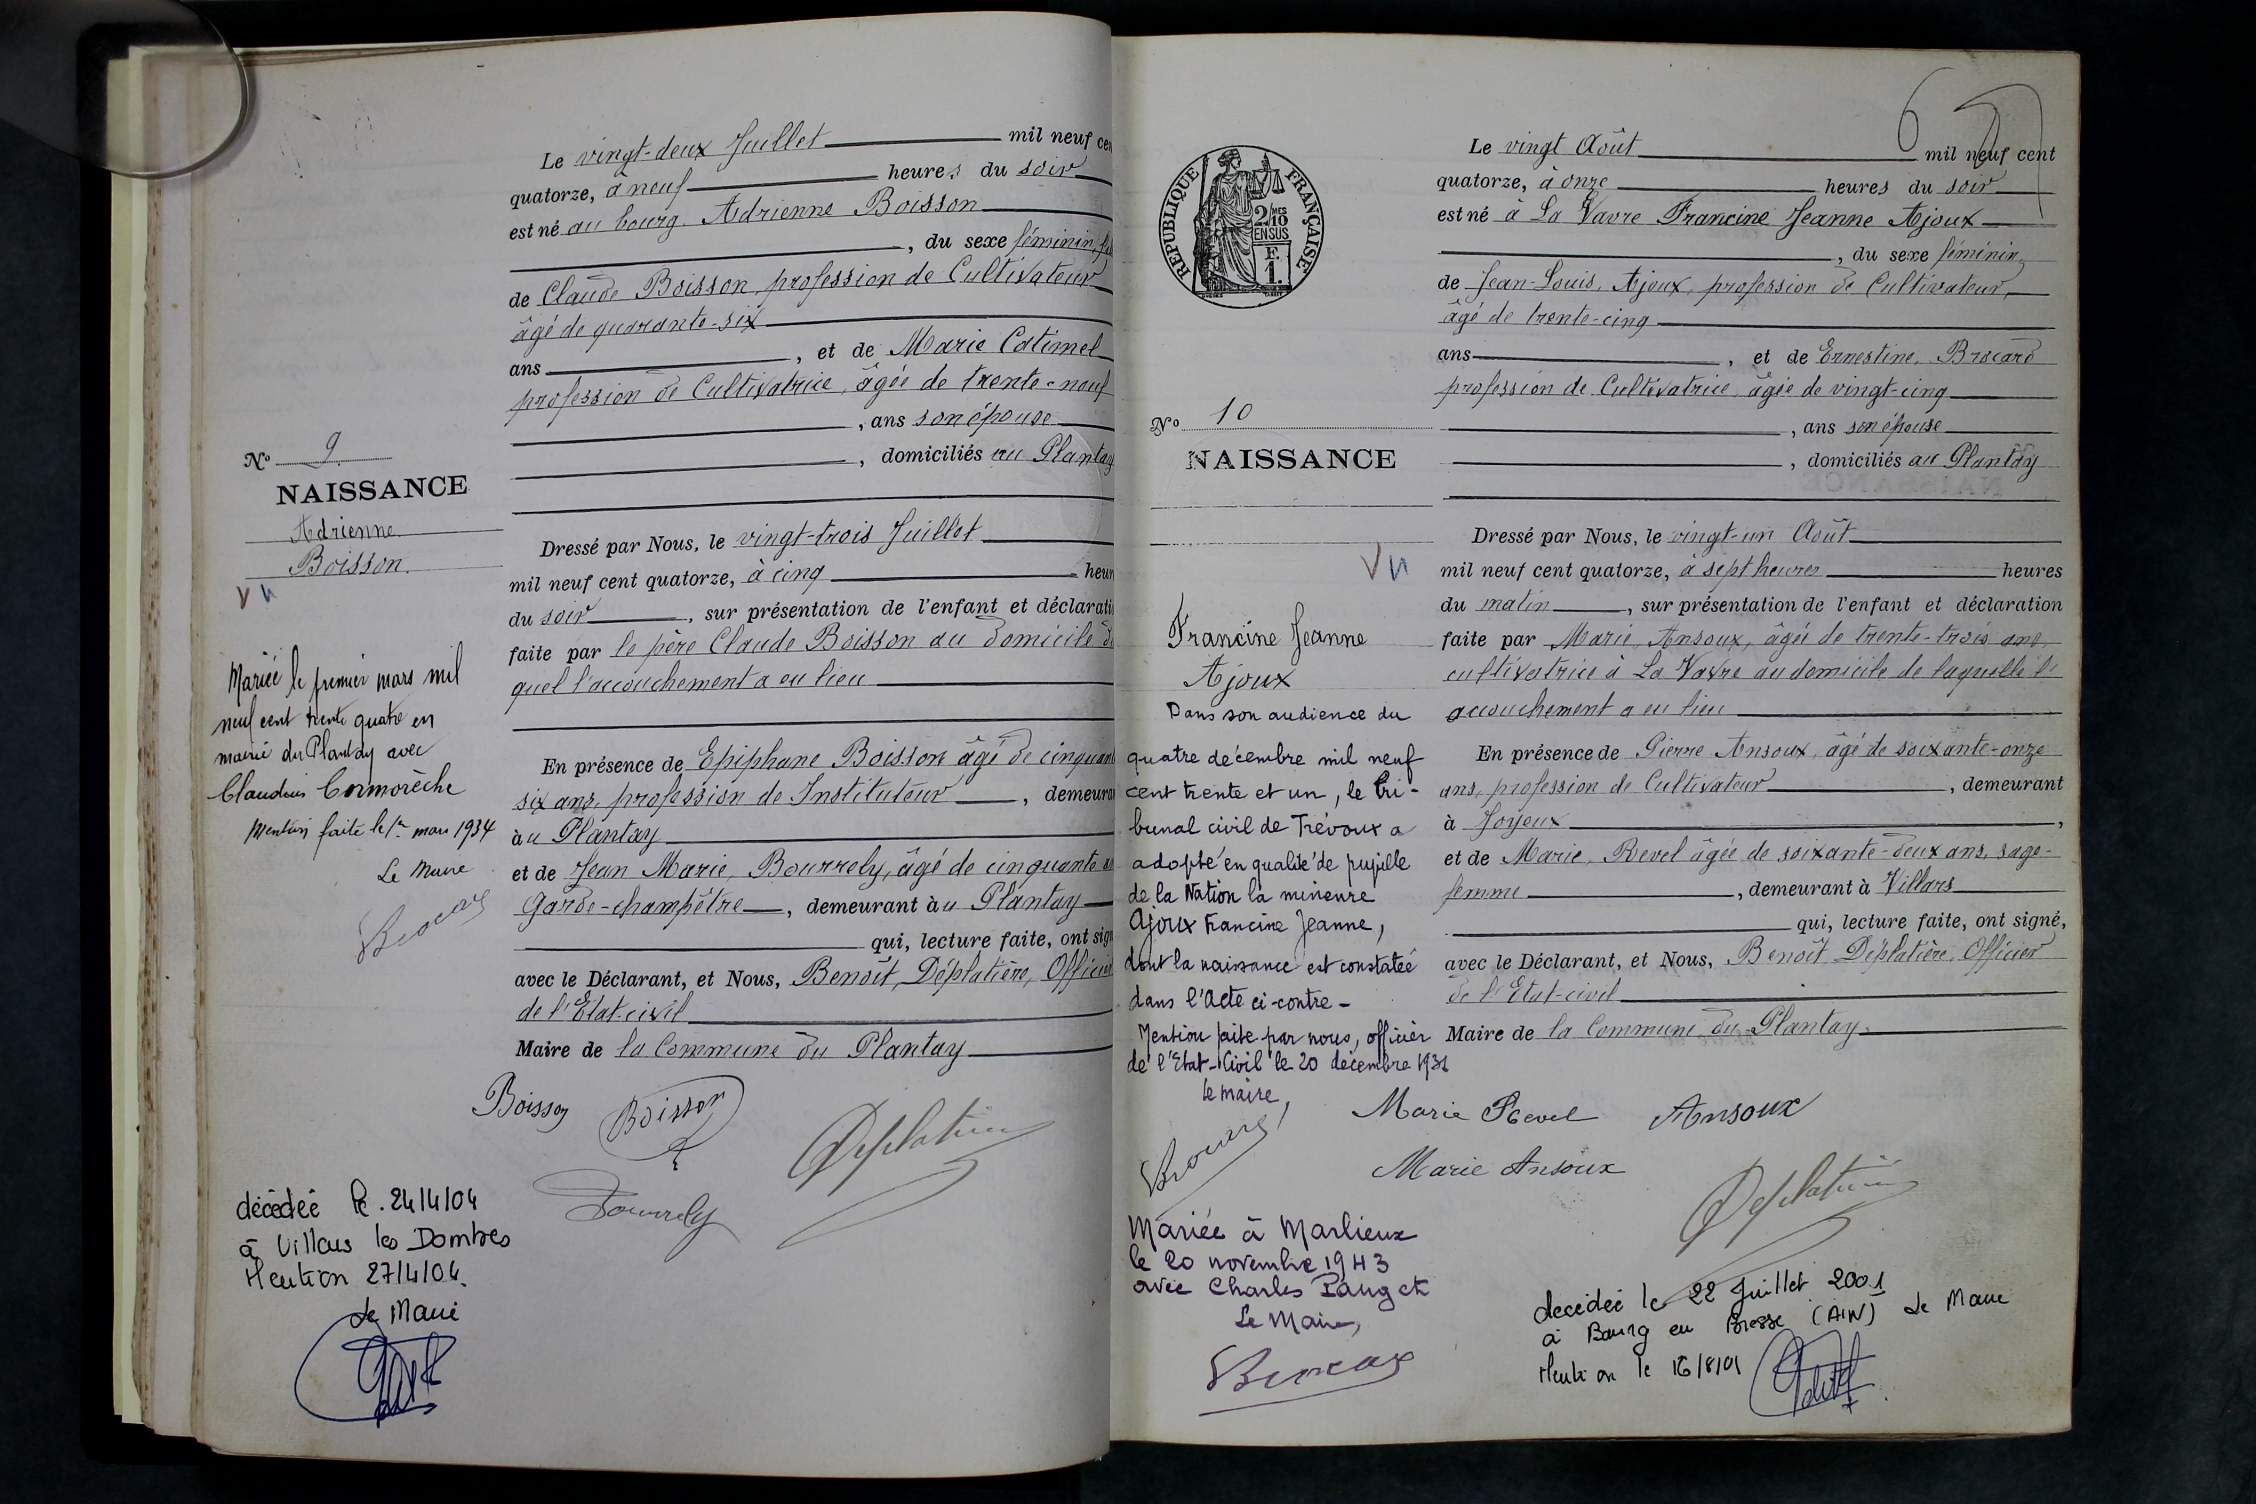 Le vingt-deux Juillet mil neuf cen
quatorze, à neuf heures du soir
est né au bourg Adrienne Boisson
, du sexe féminin, fi
de Claude Boisson, profession de Cultivateur
âgé de quarante-six
ans , et de Marie Catimel
profession de Cultivatrice, âgée de trente-neuf
, ans son épouse
, domiciliés au Plantay
Nº 9
NAISSANCE
Adrienne
Boisson.
Vu
Dressé par Nous, le vingt-trois Juillet
mil neuf cent quatorze, à cinq heur
du soir , sur présentation de l'enfant et déclarati
faite par le père Claude Boisson au domicile du
quel l'accouchement a eu lieu
En présence de Epiphane Boisson âgé de cinquante
six ans, profession de Instituteur , demeuran
à au Plantay
et de Jean Marie, Bourrely, âgé de cinquante
Garde-champêtre , demeurant à au Plantay
qui, lecture faite, ont sign
avec le Déclarant, et Nous, Benoît Déplatière, Officier
de l'Etat-civil
Maire de la Commune du Plantay
Mariée le premier mars mil
neuf cent trente quatre en
mairie du Plantay avec
Claudius Cormorèche
Mention faite le 1er mars 1934
Le Maire
Brocard
Boisson Boisson Déplatière
Bourrely
décédée le 24/4/04
à Villars les Dombes
Mention 27/4/04.
Le Maire
67
RÉPUBLIQUE FRANÇAISE
2/10
EN SUS
F.
1.
Le vingt Août mil neuf cent
quatorze, à onze heures du soir
est né à La Vavre Francine Jeanne Ajoux
, du sexe féminin,
de Jean-Louis, Ajoux, profession de Cultivateur,
âgé de trente-cinq
ans , et de Ernestine, Brocard
profession de Cultivatrice, âgée de vingt-cinq
, ans son épouse
, domiciliés au Plantay
Nº 10
NAISSANCE
Vu
Francine Jeanne
Ajoux
Dressé par Nous, le vingt-un Août
mil neuf cent quatorze, à sept heures heures
du matin , sur présentation de l'enfant et déclaration
faite par Marie, Ansoux, âgée de trente-trois ans,
cultivatrice à La Vavre au domicile de laquelle l'
accouchement a eu lieu
En présence de Pierre Ansoux, âgé de soixante-onze
ans, profession de Cultivateur , demeurant
à Joyeux ,
et de Marie, Revel âgée de soixante-deux ans, sage-
femme , demeurant à Villars
qui, lecture faite, ont signé,
avec le Déclarant, et Nous, Benoît Déplatière, Officier
de l'Etat-civil
Maire de la Commune du Plantay.
Dans son audience du
quatre décembre mil neuf
cent trente et un, le tri-
bunal civil de Trévoux a
adopté en qualité de pupille
de la Nation la mineure
Ajoux Francine Jeanne,
dont la naissance est constatée
dans l'Acte ci-contre -
Mention faite par nous, officier
de l'Etat-Civil le 20 décembre 1931
Le maire,
Brocard
Marie Revel Ansoux
Marie Ansoux
Déplatière
Mariée à Marlieux
le 20 novembre 1943
avec Charles Pauget
Le Maire,
Brocard
décédée le 22 Juillet 2001
à Bourg en Bresse (AIN) Le Maire
Mention le 16/8/01